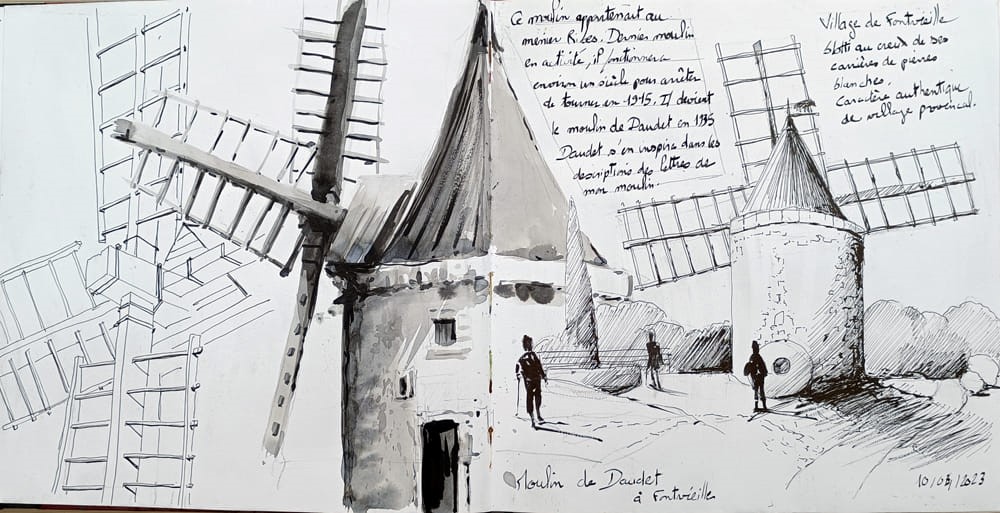 Ce moulin appartenait au
menier Ribes. Dernier moulin
en activité, il fonctionnera
environ un siècle pour arrêter
de tourner en 1915. Il devient
le moulin de Daudet en 1935
Daudet s'en inspire dans les
descriptions des lettres de
mon moulin.
Village de Fontvieille
blotti au creux de ses
carrières de pierres
blanches.
Caractère authentique
de village provençal.
Moulin de Daudet
à Fontvieille
10/03/2023